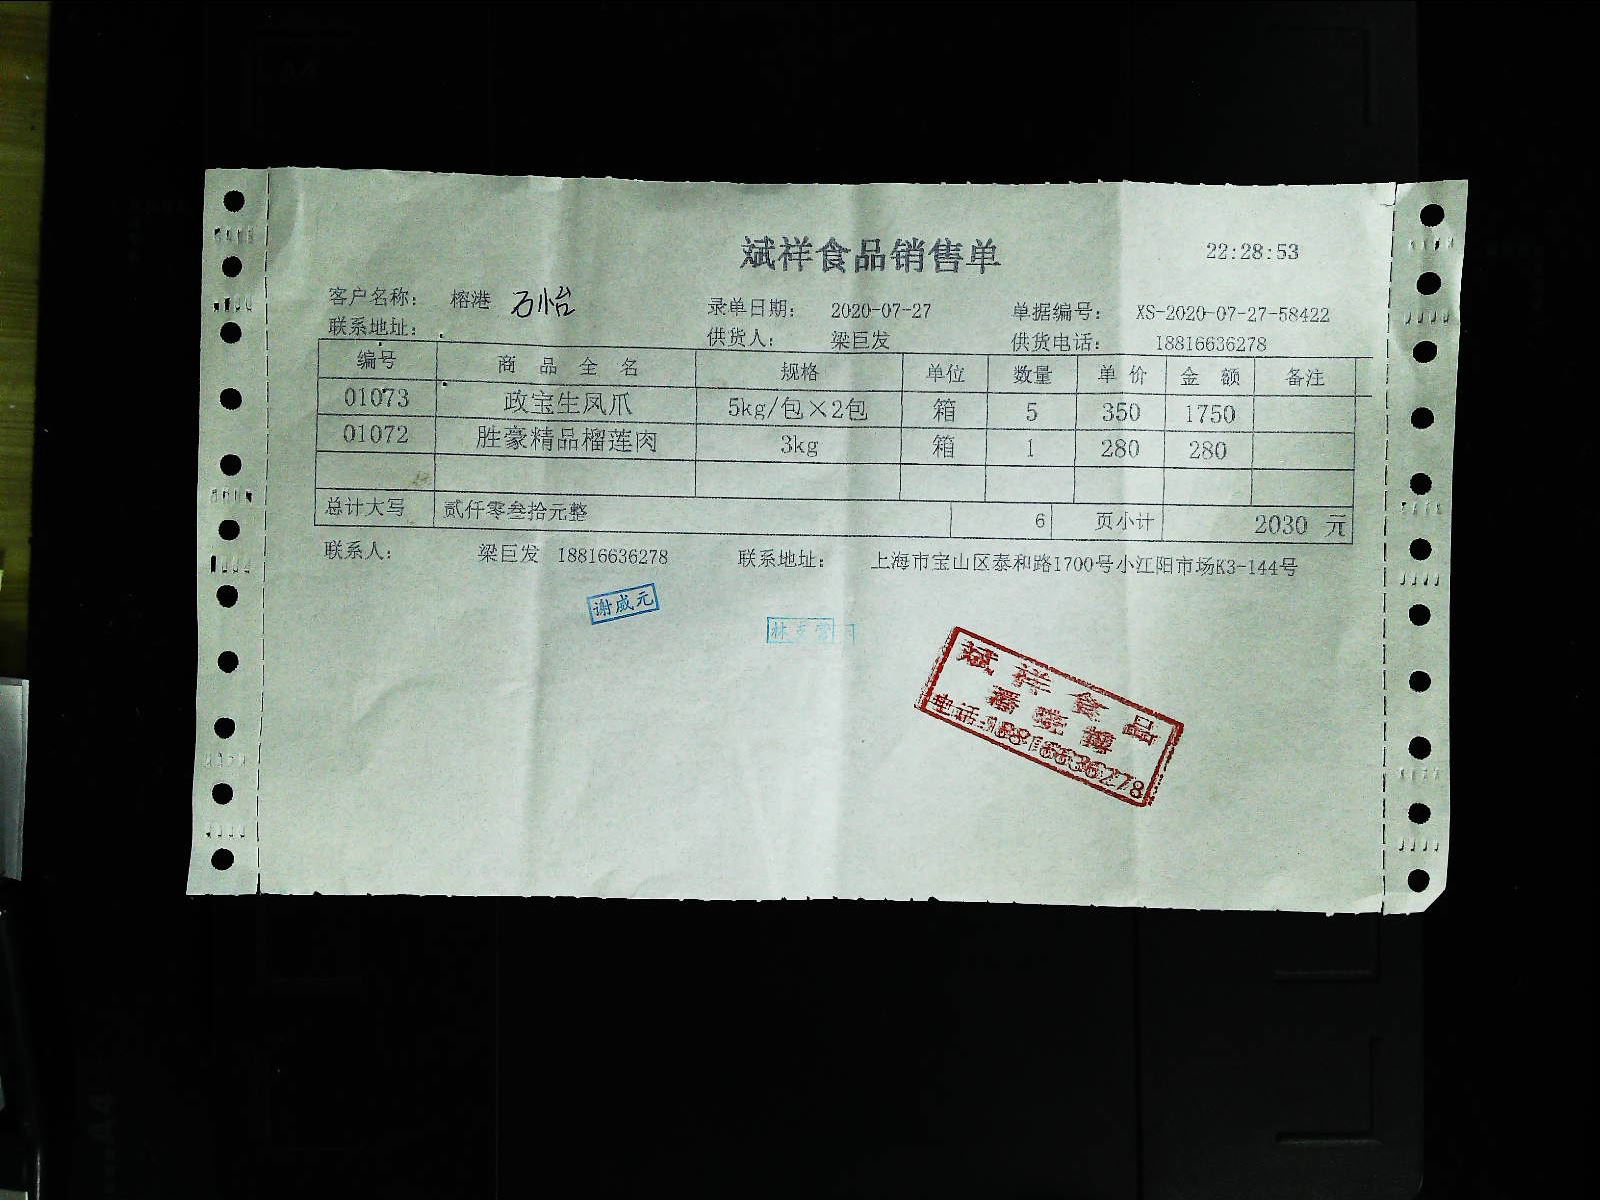 斌祥食品销售单 22:28:53
客户名称： 榕港 石怡 录单日期： 2020-07-27 单据编号： XS-2020-07-27-58422
联系地址： 供货人： 梁巨发 供货电话： 18816636278
编号 商品全名 规格 单位 数量 单价 金额 备注
01073 政宝生凤爪 5kg/包×2包 箱 5 350 1750
01072 胜豪精品榴莲肉 3kg 箱 1 280 280
总计大写 贰仟零叁拾元整 6 页小计 2030 元
联系人： 梁巨发 18816636278 联系地址： 上海市宝山区泰和路1700号小江阳市场K3-144号
谢威元
斌祥食品
电话:18816636278